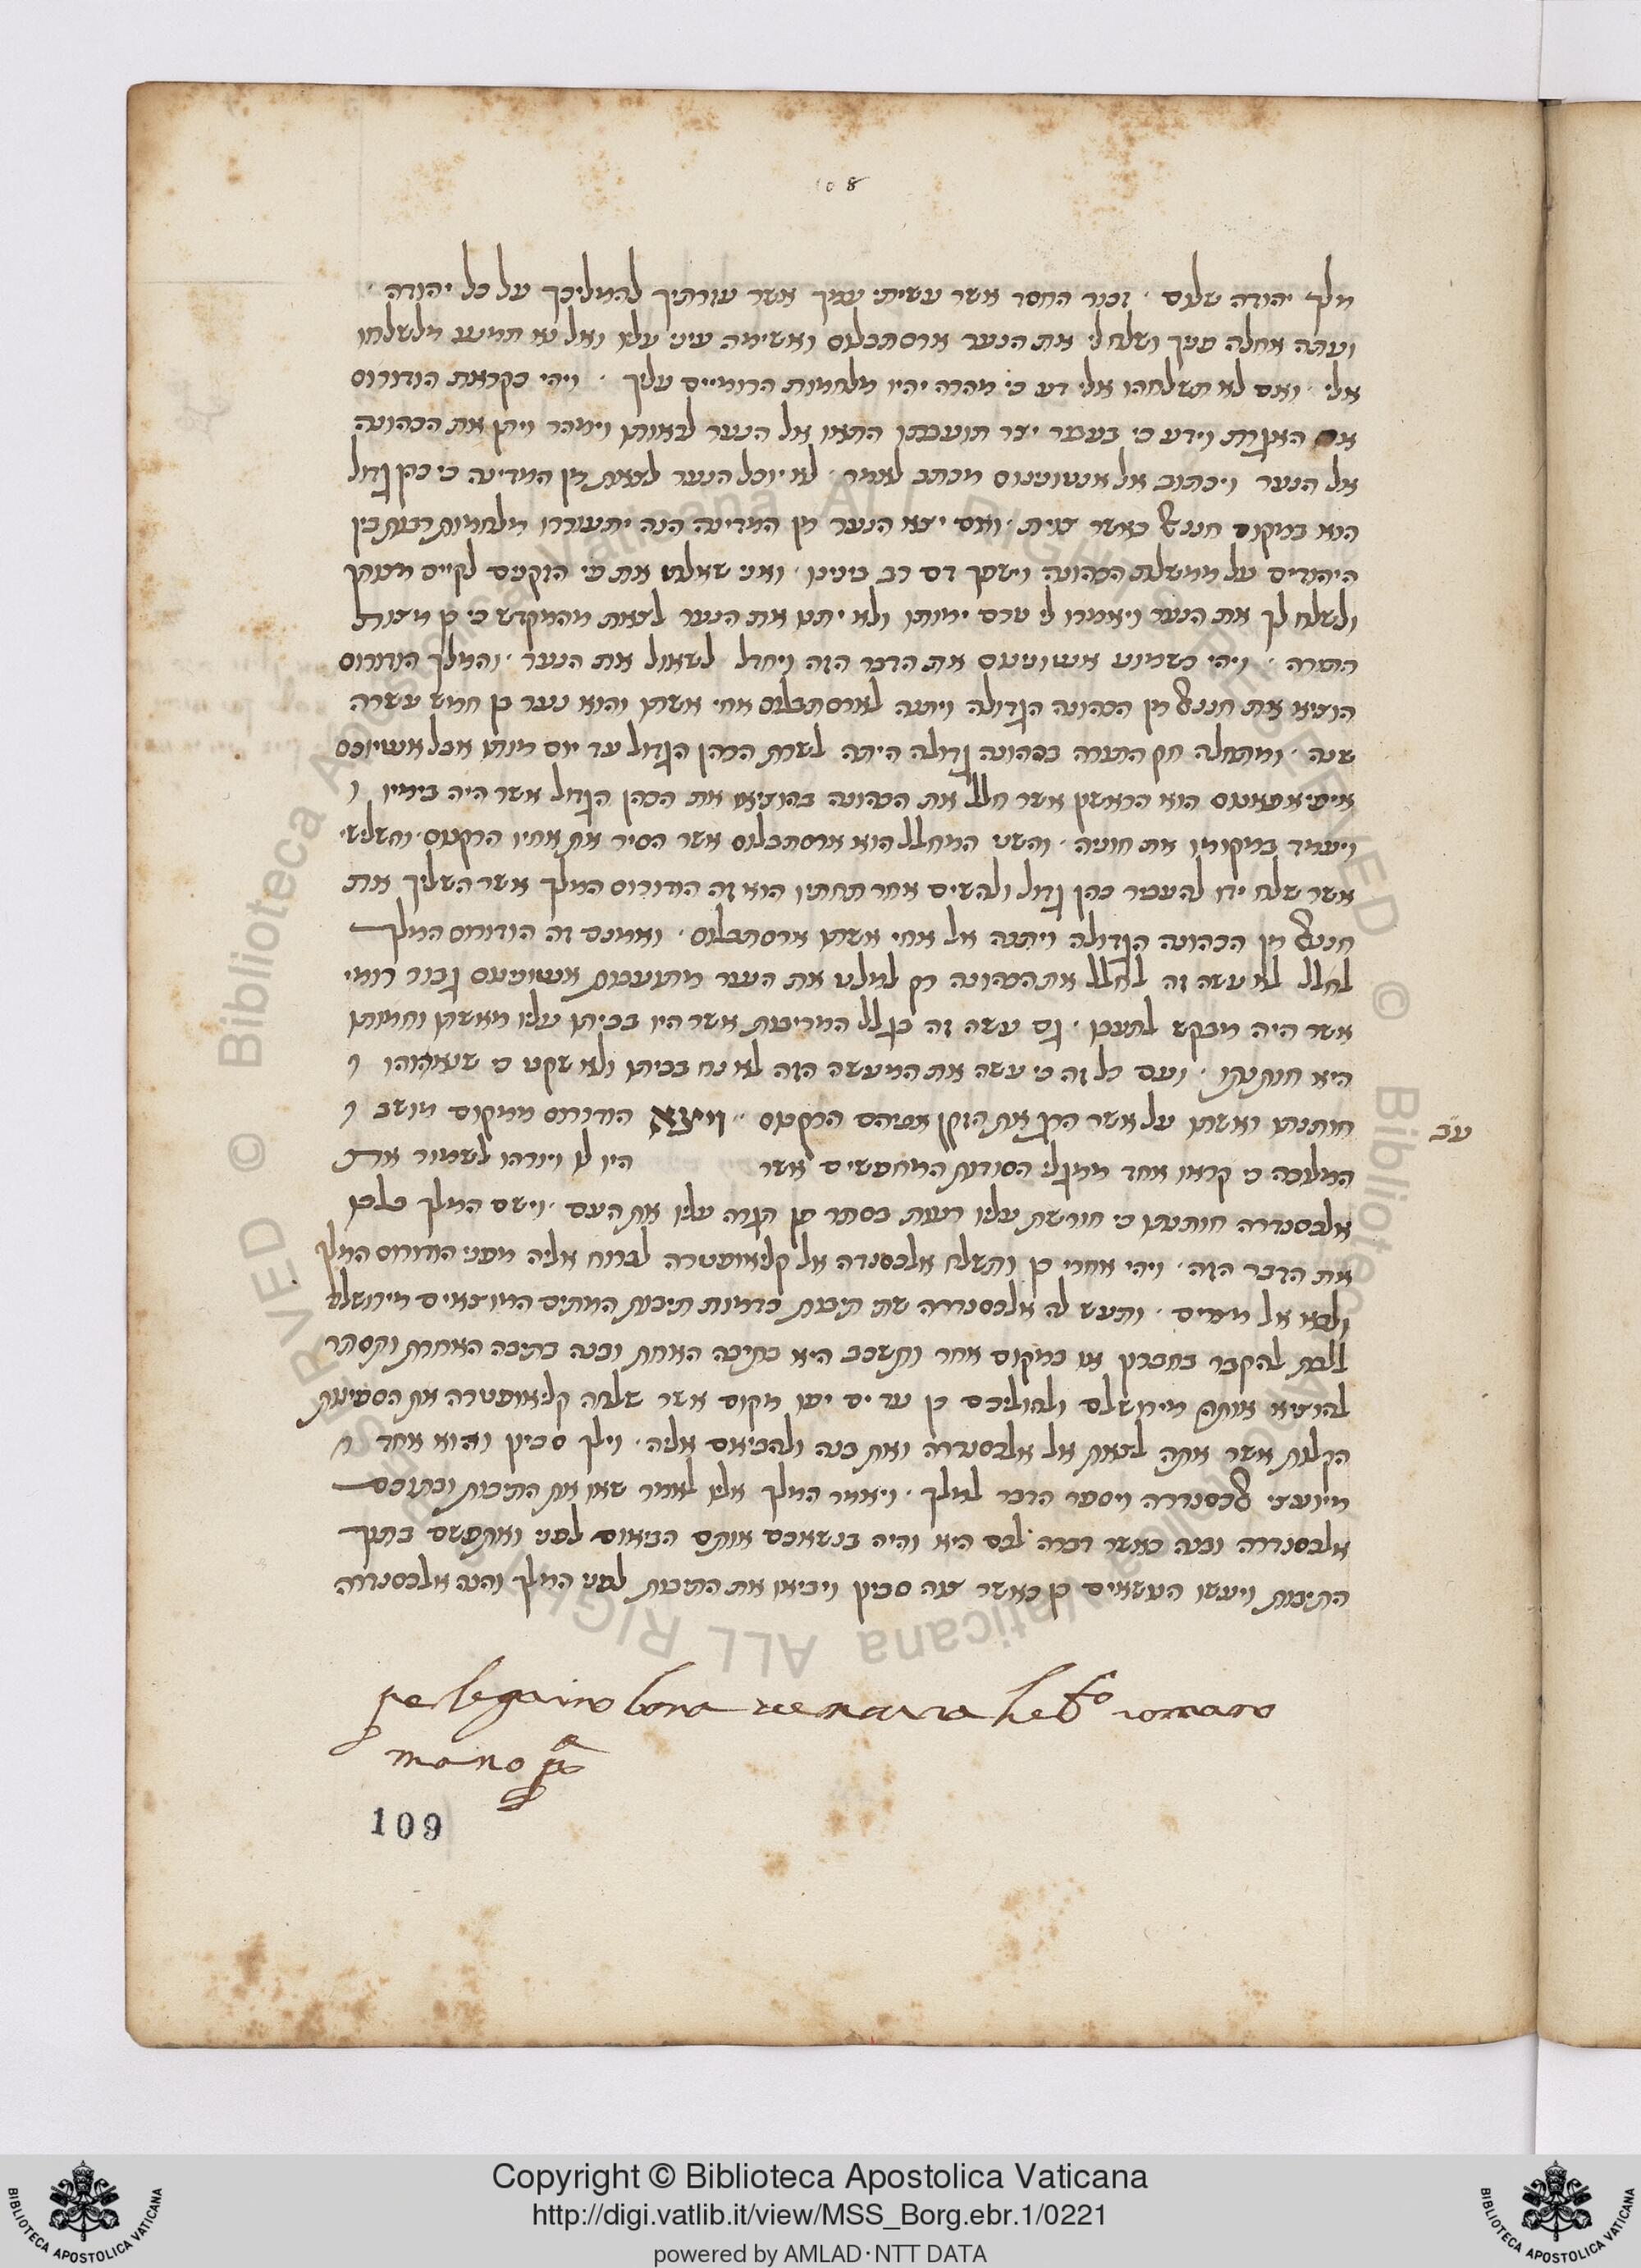 108
מלך יהודה שלום · זכור החסד אשר עשיתי עמך אשר עזרתיך להמליכך על כל יהודה ·
ועתה אחלה פניך ושלח לי את הנער ארסתבלוס ואשימה עיני עליו ואל נא תמנע מלשלחו
אלי · ואם לא תשלחהו אלי דע כי מהרה יהיו מלחמות הרומיים עליך · ויהי כקראת הורודוס
האגרת וידע כי בעבור יצר תועבתו התאוו אל הנער לראותו וימהר ויתן את הכהונה
אל הנער ויכתוב אל אנטוניונוס מכתב לאמר · לא יוכל הנער לצאת מן המדינה כי כהן גדול
הוא במקום חננאל כאשר צוית · ואם יצא הנער מן המדינה הנה יתעוררו מלחמות רבות בין
היהודים על ממשלת הכהונה וישפך דם רב בינינו · ואני שאלתי את פי הזקנים לקיים מצותך
ולשלח לך את הנער ויאמרו לי טרם ימותו ולא יתנו את הנער לצאת מהמקדש כי כן מצות
התורה · ויהי כשמוע אנטוניונוס את הדבר הזה ויחדל לשאול את הנער · והמלך הורודוס
הוציא את חננאל מן הכהונה הגדולה ויתנה לארסתבלוס אחי אשתו והוא נער בן חמש עשרה
שנה · ומתחלה חק התורה בכהונה גדולה היתה לשרת הכהן הגדול עד יום מותו אבל אנטיוכס
איפיאפאנוס הוא הראשון אשר חלל את הכהונה בהוציאו את הכהן הגדול אשר היה בימיו ו
ויעמד במקומו את חוניה · והשני המחלל הוא ארסתבלוס אשר הסיר את אחיו הרקנוס · והשלישי
אשר שלח ידו להעביר כהן גדול ולהשים אחר תחתיו הוא זה הורודוס המלך אשר השליך את
חננאל מן הכהונה הגדולה ויתנה אל אחי אשתו ארסתבלוס · ואמנם זה הורודוס המלך
לחלל לא עשה זה לחלל את הכהונה רק למלט את הנער מתועבות אנטוניונוס גבור רומי
אשר היה מבקש לתעבו · גם עשה זה בגלל המריבות אשר היו בביתו עליו מאשתו וחמותו
היא חותנתו · ועם כל זה כי עשה את המעשה הזה לא נח בביתו ולא שקט כי שנאוהו ו
חותנתו ואשתו על אשר הרג את הזקן אביהם הרקנוס ·· ויצא הורודוס ממקום מושב ו
עב
המלוכה כי קראו אחד ממגלי הסודות המחפשים אשר היו לו ויזרהו לשמור את
אלכסנדרה חותנתו כי חורשת עליו רעות בסתר גם הגרה עליו את העם · וישם המלך בלבו
את הדבר הזה · ויהי אחרי כן ותשלח אלכסנדרה אל קליאופטרה לברוח אליה מפני הורודוס המלך
ולבא אל מצרים · ותעש לה אלכסנדרה שתי תיבות כדמות תיבות המתים המוצאים מירושלם
ללכת להקבר בחברון או במקום אחר ותשכב היא בתיבה האחת ובנה בתיבה האחרת ותסתר
להוציא אותם מירושלם ולהוליכם כן עד ים יפו מקום אשר שלחה קליאופטרה את הספינות
הקלות אשר אתה לצאת אל אלכסנדרה ואת בנה ולהביאם אליה · וילך סכיון והוא אחד ו
מיועצי אלכסנדרה ויספר הדבר למלך · ויאמר המלך אליו לאמר שאו את התיבות ובתוכם
אלכסנדרה ובנה כאשר דברה לכם היא והיה בנשאכם אותם הביאום לפני ואתפשם בתוך
התיבות ויעשו הנושאים כן כאשר צוה סכיון ויביאו את התיבות לפני המלך והנה אלכסנדרה
pelegrino bona
mano
109
Copyright © Biblioteca Apostolica Vaticana
http://digi.vatlib.it/view/MSS_Borg.ebr.1/0221
powered by AMLAD·NTT DATA
BIBLIOTECA APOSTOLICA VATICANA
BIBLIOTECA APOSTOLICA VATICANA
© Biblioteca Apostolica Vaticana ALL RIGHTS RESERVED